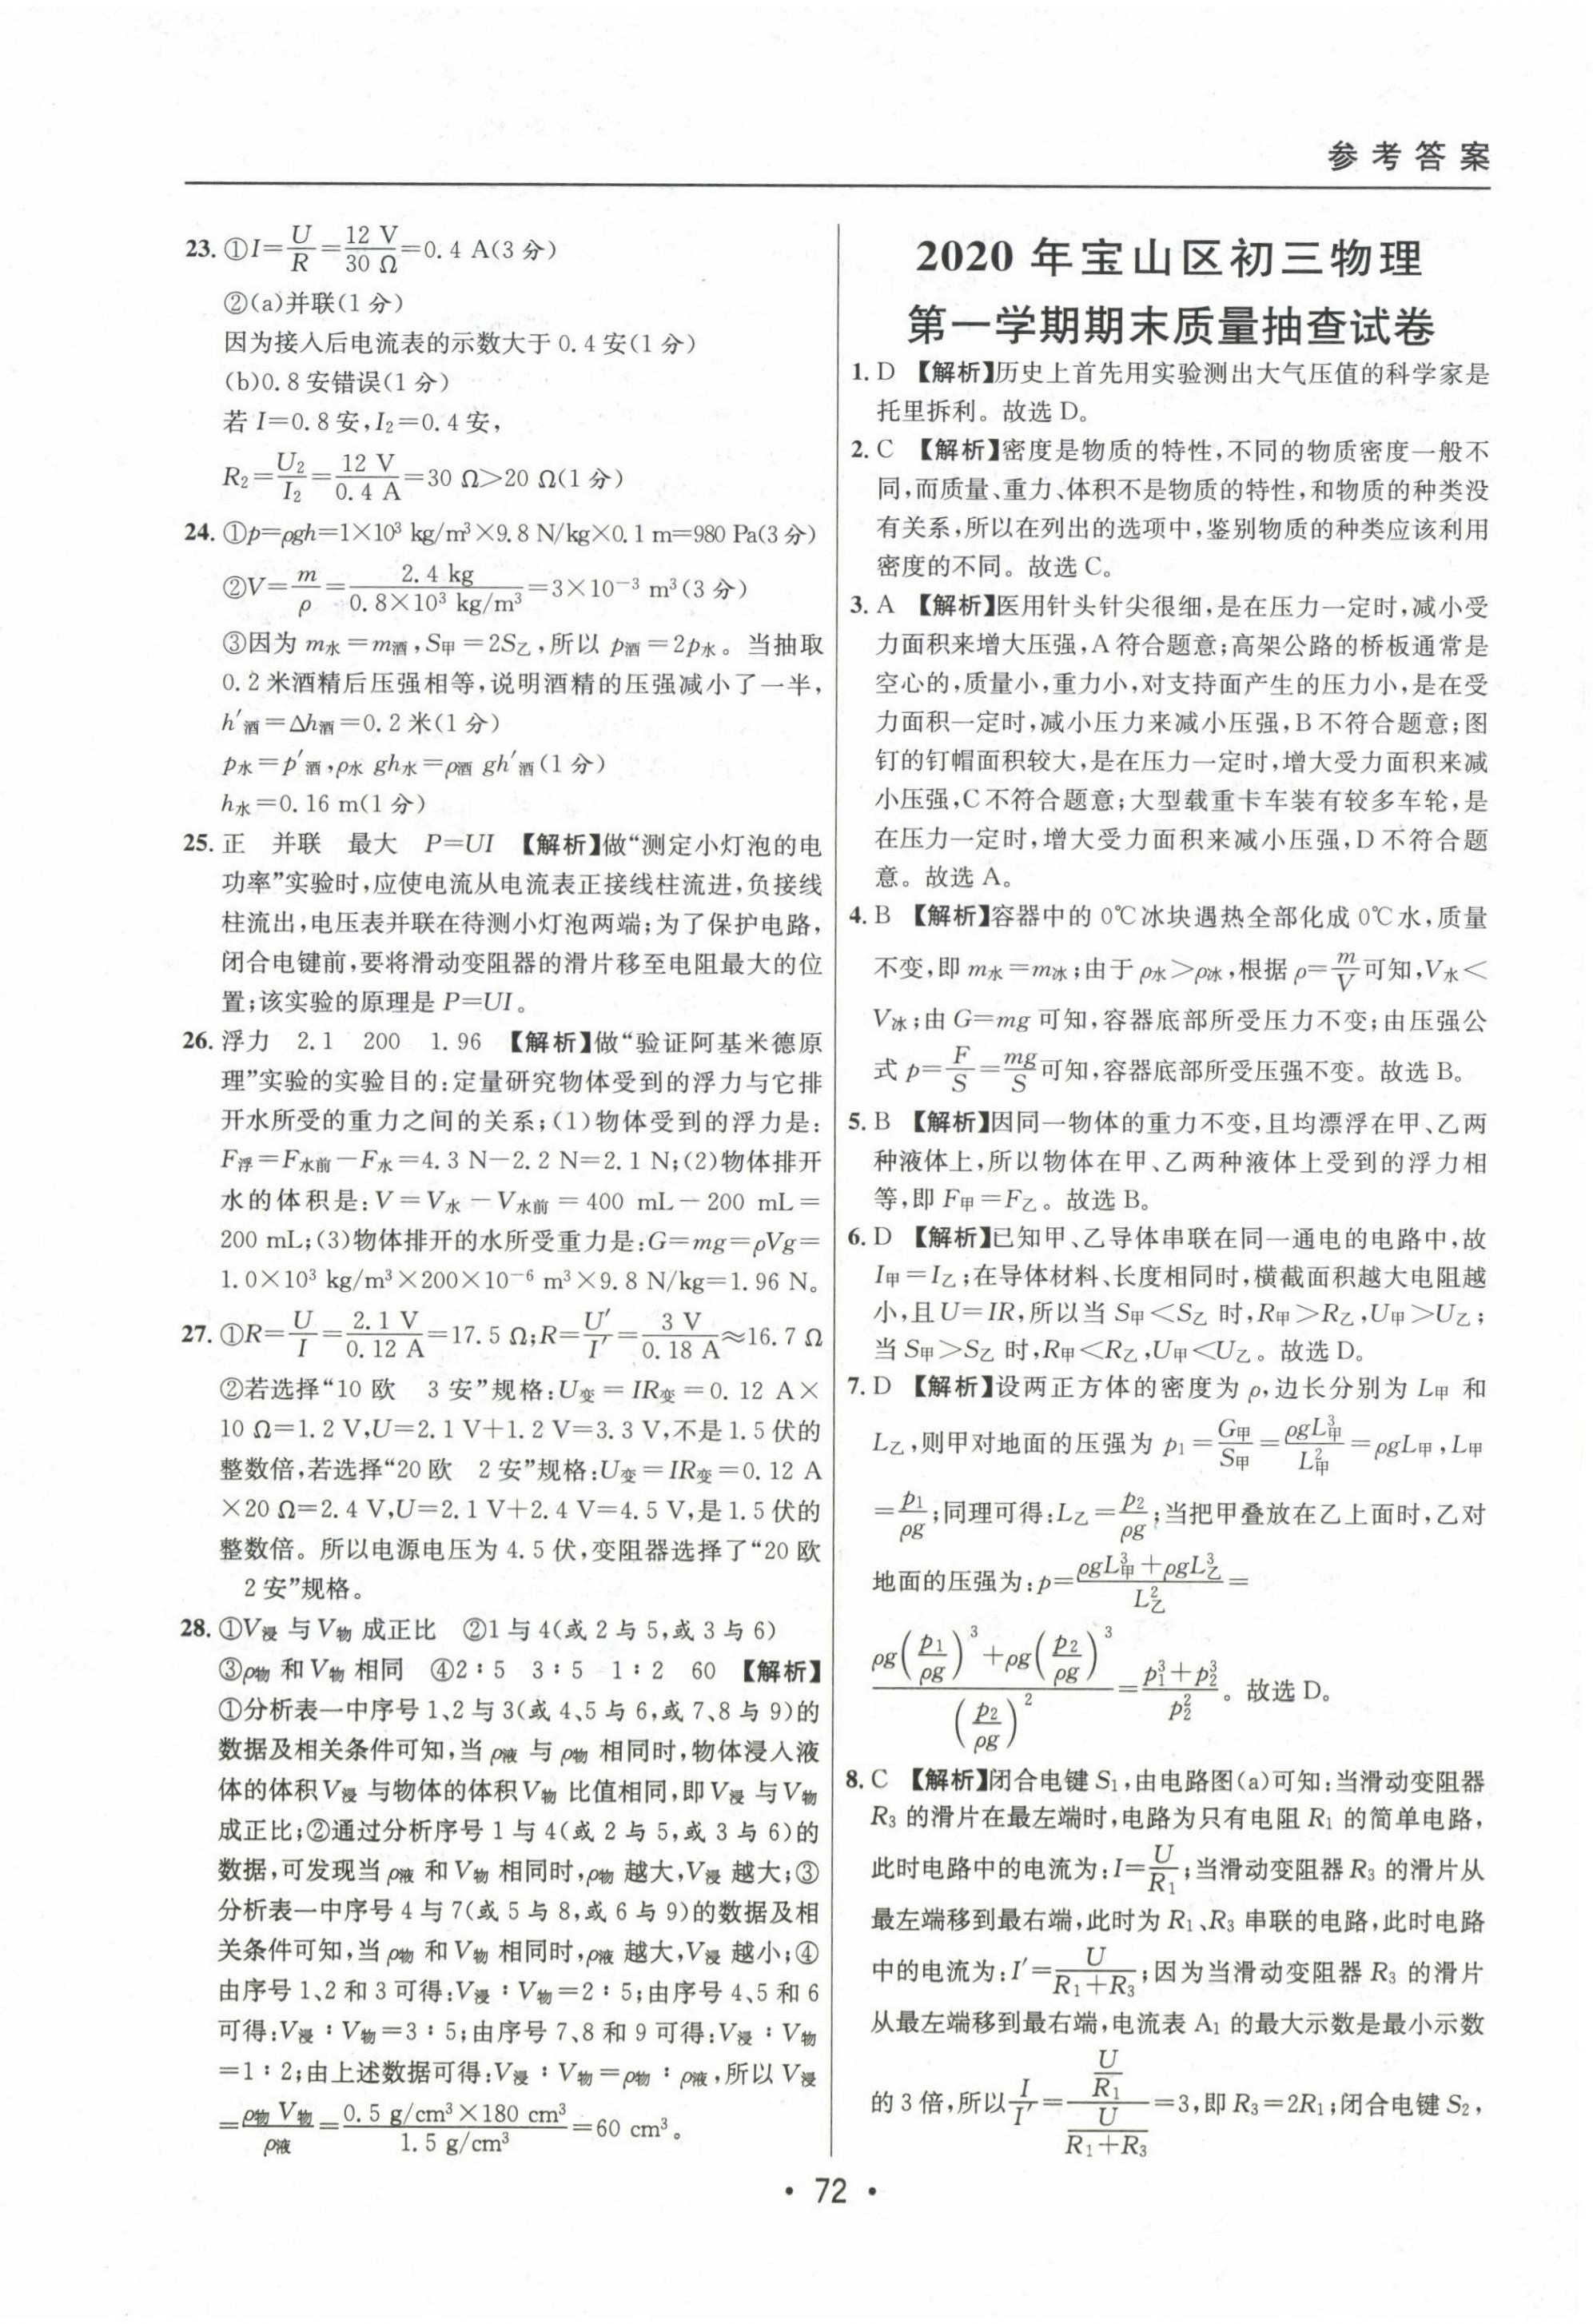 参考答案
23. ①I=U/R=12 V/30 Ω=0.4 A(3分)
②(a)并联(1分)
因为接入后电流表的示数大于0.4安(1分)
(b)0.8安错误(1分)
若I=0.8安,I₂=0.4安,
R₂=U₂/I₂=12 V/0.4 A=30 Ω>20 Ω(1分)
24. ①p=ρgh=1×10³ kg/m³×9.8 N/kg×0.1 m=980 Pa(3分)
②V=m/ρ=2.4 kg/0.8×10³ kg/m³=3×10⁻³ m³(3分)
③因为m水=m酒,S甲=2S乙,所以p酒=2p水。当抽取
0.2米酒精后压强相等,说明酒精的压强减小了一半,
h′酒=Δh酒=0.2米(1分)
p水=p′酒,ρ水gh水=ρ酒gh′酒(1分)
h水=0.16 m(1分)
25. 正 并联 最大 P=UI 【解析】做“测定小灯泡的电
功率”实验时,应使电流从电流表正接线柱流进,负接线
柱流出,电压表并联在待测小灯泡两端;为了保护电路,
闭合电键前,要将滑动变阻器的滑片移至电阻最大的位
置;该实验的原理是P=UI。
26. 浮力 2.1 200 1.96 【解析】做“验证阿基米德原
理”实验的实验目的:定量研究物体受到的浮力与它排
开水所受的重力之间的关系;(1)物体受到的浮力是:
F浮=F水前-F水=4.3 N-2.2 N=2.1 N;(2)物体排开
水的体积是:V=V水-V水前=400 mL-200 mL=
200 mL;(3)物体排开的水所受重力是:G=mg=ρVg=
1.0×10³ kg/m³×200×10⁻⁶ m³×9.8 N/kg=1.96 N。
27. ①R=U/I=2.1 V/0.12 A=17.5 Ω;R=U′/I′=3 V/0.18 A≈16.7 Ω
②若选择“10欧 3安”规格:U变=IR变=0.12 A×
10 Ω=1.2 V,U=2.1 V+1.2 V=3.3 V,不是1.5伏的
整数倍,若选择“20欧 2安”规格:U变=IR变=0.12 A
×20 Ω=2.4 V,U=2.1 V+2.4 V=4.5 V,是1.5伏的
整数倍。所以电源电压为4.5伏,变阻器选择了“20欧
2安”规格。
28. ①V浸与V物成正比 ②1与4(或2与5,或3与6)
③ρ物和V物相同 ④2∶5 3∶5 1∶2 60 【解析】
①分析表一中序号1、2与3(或4、5与6,或7、8与9)的
数据及相关条件可知,当ρ液与ρ物相同时,物体浸入液
体的体积V浸与物体的体积V物比值相同,即V浸与V物
成正比;②通过分析序号1与4(或2与5,或3与6)的
数据,可发现当ρ液和V物相同时,ρ物越大,V浸越大;③
分析表一中序号4与7(或5与8,或6与9)的数据及相
关条件可知,当ρ物和V物相同时,ρ液越大,V浸越小;④
由序号1、2和3可得:V浸∶V物=2∶5;由序号4、5和6
可得:V浸∶V物=3∶5;由序号7、8和9可得:V浸∶V物
=1∶2;由上述数据可得:V浸∶V物=ρ物∶ρ液,所以V浸
=ρ物V物/ρ液=0.5 g/cm³×180 cm³/1.5 g/cm³=60 cm³。
2020年宝山区初三物理
第一学期期末质量抽查试卷
1. D 【解析】历史上首先用实验测出大气压值的科学家是
托里拆利。故选D。
2. C 【解析】密度是物质的特性,不同的物质密度一般不
同,而质量、重力、体积不是物质的特性,和物质的种类没
有关系,所以在列出的选项中,鉴别物质的种类应该利用
密度的不同。故选C。
3. A 【解析】医用针头针尖很细,是在压力一定时,减小受
力面积来增大压强,A符合题意;高架公路的桥板通常是
空心的,质量小,重力小,对支持面产生的压力小,是在受
力面积一定时,减小压力来减小压强,B不符合题意;图
钉的钉帽面积较大,是在压力一定时,增大受力面积来减
小压强,C不符合题意;大型载重卡车装有较多车轮,是
在压力一定时,增大受力面积来减小压强,D不符合题
意。故选A。
4. B 【解析】容器中的0℃冰块遇热全部化成0℃水,质量
不变,即m水=m冰;由于ρ水>ρ冰,根据ρ=m/V可知,V水<
V冰;由G=mg可知,容器底部所受压力不变;由压强公
式p=F/S=mg/S可知,容器底部所受压强不变。故选B。
5. B 【解析】因同一物体的重力不变,且均漂浮在甲、乙两
种液体上,所以物体在甲、乙两种液体上受到的浮力相
等,即F甲=F乙。故选B。
6. D 【解析】已知甲、乙导体串联在同一通电的电路中,故
I甲=I乙;在导体材料、长度相同时,横截面积越大电阻越
小,且U=IR,所以当S甲<S乙时,R甲>R乙,U甲>U乙;
当S甲>S乙时,R甲<R乙,U甲<U乙。故选D。
7. D 【解析】设两正方体的密度为ρ,边长分别为L甲和
L乙,则甲对地面的压强为p₁=G甲/S甲=ρgL³甲/L²甲=ρgL甲,L甲
=p₁/ρg;同理可得:L乙=p₂/ρg;当把甲叠放在乙上面时,乙对
地面的压强为:p=(ρgL³甲+ρgL³乙)/L²乙=
(ρg(p₁/ρg)³+ρg(p₂/ρg)³)/(p₂/ρg)²=(p₁³+p₂³)/p₂²。故选D。
8. C 【解析】闭合电键S₁,由电路图(a)可知:当滑动变阻器
R₃的滑片在最左端时,电路为只有电阻R₁的简单电路,
此时电路中的电流为:I=U/R₁;当滑动变阻器R₃的滑片从
最左端移到最右端,此时为R₁、R₃串联的电路,此时电路
中的电流为:I′=U/(R₁+R₃);因为当滑动变阻器R₃的滑片
从最左端移到最右端,电流表A₁的最大示数是最小示数
的3倍,所以I/I′=(U/R₁)/(U/(R₁+R₃))=3,即R₃=2R₁;闭合电键S₂,
• 72 •